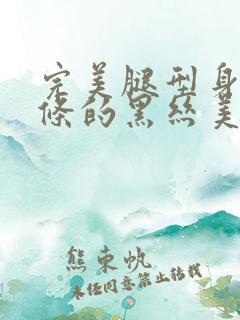 完美腿型身
條的黑絲美
熊東帆
未经同意禁止转载